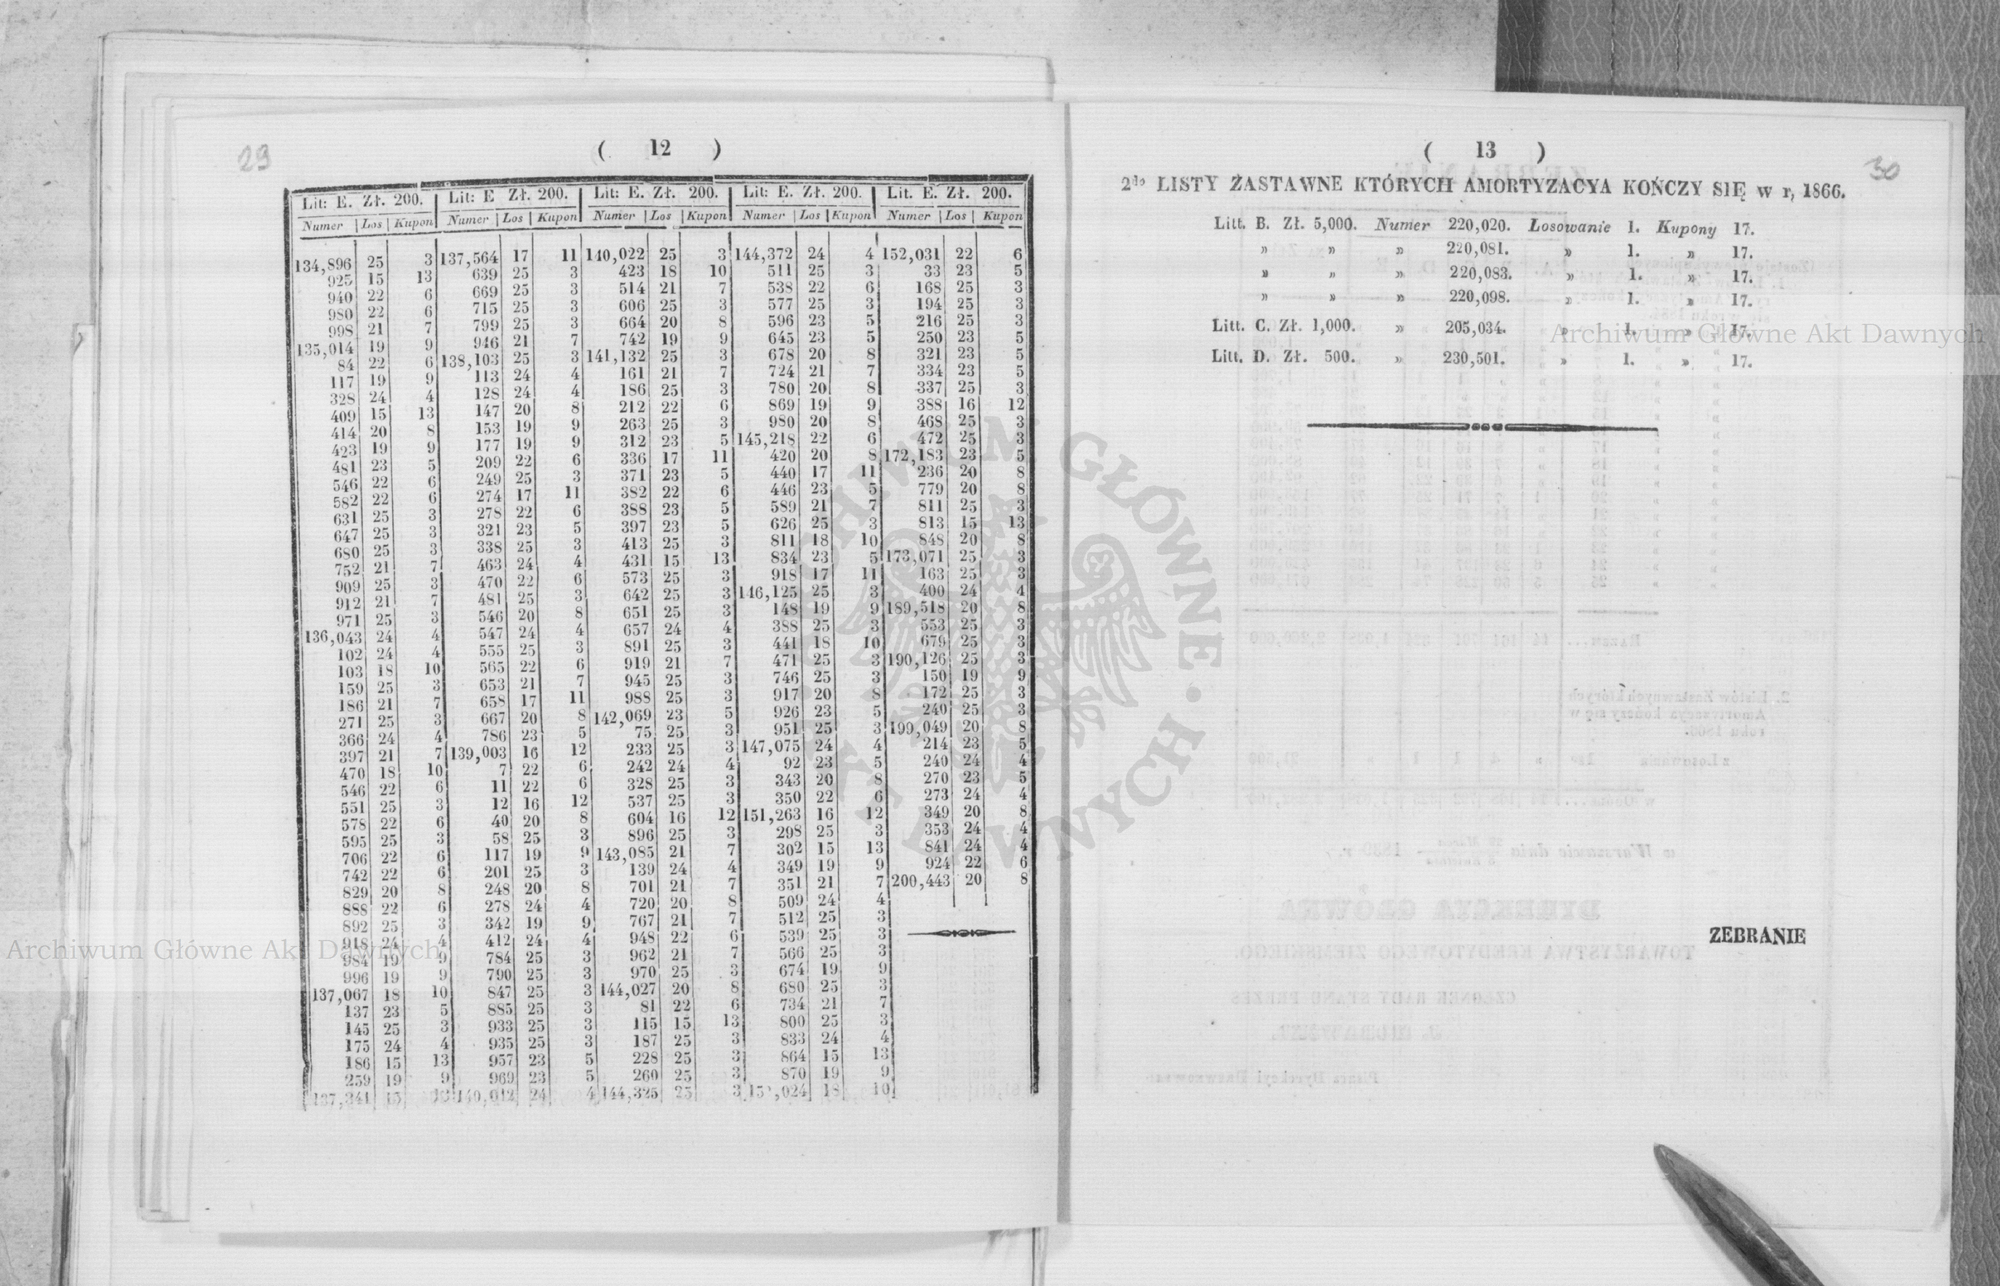 29
( 12 )
Lit: E. Zł. 200.
Numer Los Kupon
134,896 25 3
925 15 13
940 22 6
980 22 6
998 21 7
135,014 19 9
84 22 6
117 19 9
328 24 4
409 15 13
414 20 8
423 19 9
481 23 5
546 22 6
582 22 6
631 25 3
647 25 3
680 25 3
752 21 7
909 25 3
912 21 7
971 25 3
136,043 24 4
102 24 4
103 18 10
159 25 3
186 21 7
271 25 3
366 24 4
397 21 7
470 18 10
546 22 6
551 25 3
578 22 6
595 25 3
706 22 6
742 22 6
829 20 8
888 22 6
892 25 3
918 24 4
984 19 9
996 19 9
137,067 18 10
137 23 5
145 25 3
175 24 4
186 15 13
259 19 9
137,341 15 13
Lit: E Zł. 200.
Numer Los Kupon
137,564 17 11
639 25 3
669 25 3
715 25 3
799 25 3
946 21 7
138,103 25 3
113 24 4
128 24 4
147 20 8
153 19 9
177 19 9
209 22 6
249 25 3
274 17 11
278 22 6
321 23 5
338 25 3
463 24 4
470 22 6
481 25 3
546 20 8
547 24 4
555 25 3
565 22 6
653 21 7
658 17 11
667 20 8
786 23 5
139,003 16 12
7 22 6
11 22 6
12 16 12
40 20 8
58 25 3
117 19 9
201 25 3
248 20 8
278 24 4
342 19 9
412 24 4
784 25 3
790 25 3
847 25 3
885 25 3
933 25 3
935 25 3
957 23 5
969 23 5
140,012 24 4
Lit: E. Zł. 200.
Numer Los Kupon
140,022 25 3
423 18 10
514 21 7
606 25 3
664 20 8
742 19 9
141,132 25 3
161 21 7
186 25 3
212 22 6
263 25 3
312 23 5
336 17 11
371 23 5
382 22 6
388 23 5
397 23 5
413 25 3
431 15 13
573 25 3
642 25 3
651 25 3
657 24 4
891 25 3
919 21 7
945 25 3
988 25 3
142,069 23 5
75 25 3
233 25 3
242 24 4
328 25 3
537 25 3
604 16 12
896 25 3
143,085 21 7
139 24 4
701 21 7
720 20 8
767 21 7
948 22 6
962 21 7
970 25 3
144,027 20 8
81 22 6
115 15 13
187 25 3
228 25 3
260 25 3
144,325 25 3
Lit: E. Zł. 200.
Numer Los Kupon
144,372 24 4
511 25 3
538 22 6
577 25 3
596 23 5
645 23 5
678 20 8
724 21 7
780 20 8
869 19 9
980 20 8
145,218 22 6
420 20 8
440 17 11
446 23 5
589 21 7
626 25 3
811 18 10
834 23 5
918 17 11
146,125 25 3
148 19 9
388 25 3
441 18 10
471 25 3
746 25 3
917 20 8
926 23 5
951 25 3
147,075 24 4
92 23 5
343 20 8
350 22 6
151,263 16 12
298 25 3
302 15 13
349 19 9
351 21 7
509 24 4
512 25 3
539 25 3
566 25 3
674 19 9
680 25 3
734 21 7
800 25 3
833 24 4
864 15 13
870 19 9
024 18 10
Lit. E. Zł. 200.
Numer Los Kupon
152,031 22 6
33 23 5
168 25 3
194 25 3
216 25 3
250 23 5
321 23 5
334 23 5
337 25 3
388 16 12
468 25 3
472 25 3
172,183 23 5
236 20 8
779 20 8
811 25 3
813 15 13
848 20 8
173,071 25 3
163 25 3
400 24 4
189,518 20 8
553 25 3
679 25 3
190,126 25 3
150 19 9
172 25 3
240 25 3
199,049 20 8
214 23 5
240 24 4
270 23 5
273 24 4
349 20 8
353 24 4
841 24 4
924 22 6
200,443 20 8
( 13 )
30
2do LISTY ZASTAWNE KTÓRYCH AMORTYZACYA KOŃCZY SIĘ w r, 1866.
Litt. B. Zł. 5,000. Numer 220,020. Losowanie 1. Kupony 17.
» » » 220,081. » 1. » 17.
» » » 220,083. » 1. » 17.
» » » 220,098. » 1. » 17.
Litt. C. Zł. 1,000. » 205,034. » 1. » 17.
Litt. D. Zł. 500. » 230,501. » 1. » 17.
ZEBRANIE
Archiwum Główne Akt Dawnych
Archiwum Główne Akt Dawnych
ARCHIWUM GŁÓWNE AKT DAWNYCH